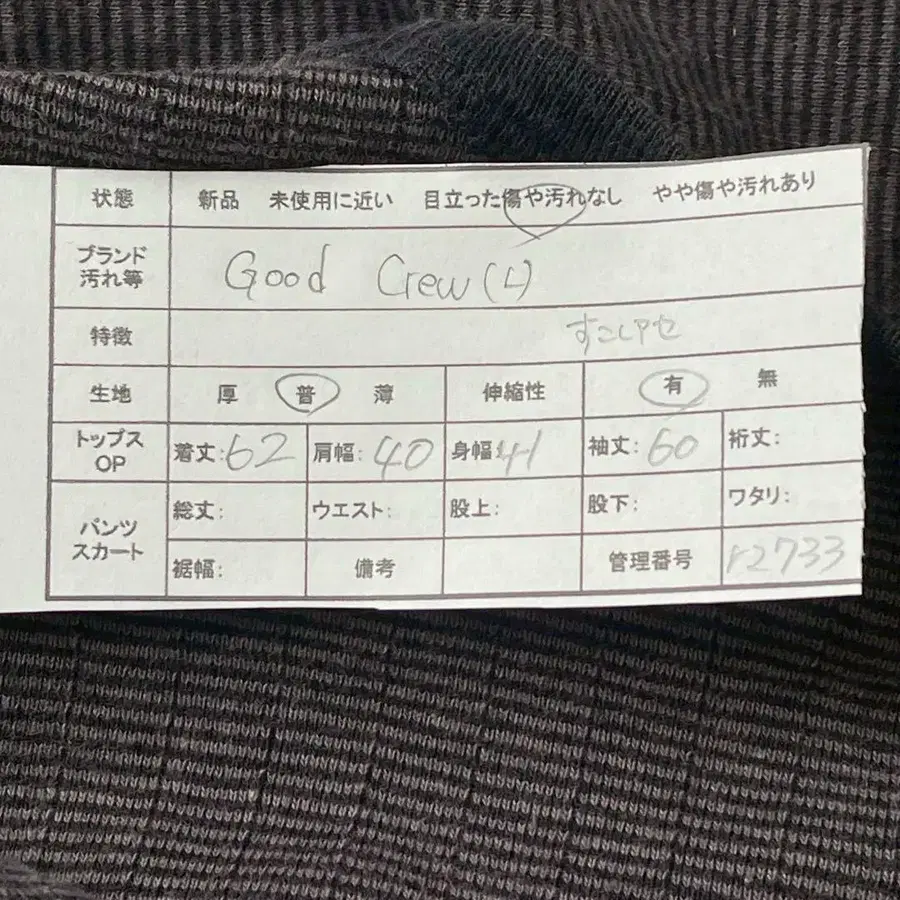 状態 新品 未使用に近い 目立った傷や汚れなし やや傷や汚れあり
ブランド 汚れ等 Good Crew (L)
特徴 すこしアセ
生地 厚 普 薄 伸縮性 有 無
トップス OP 着丈:62 肩幅:40 身幅:41 袖丈:60 裄丈:
パンツ スカート 総丈: ウエスト: 股上: 股下: ワタリ:
裾幅: 備考 管理番号 r2733